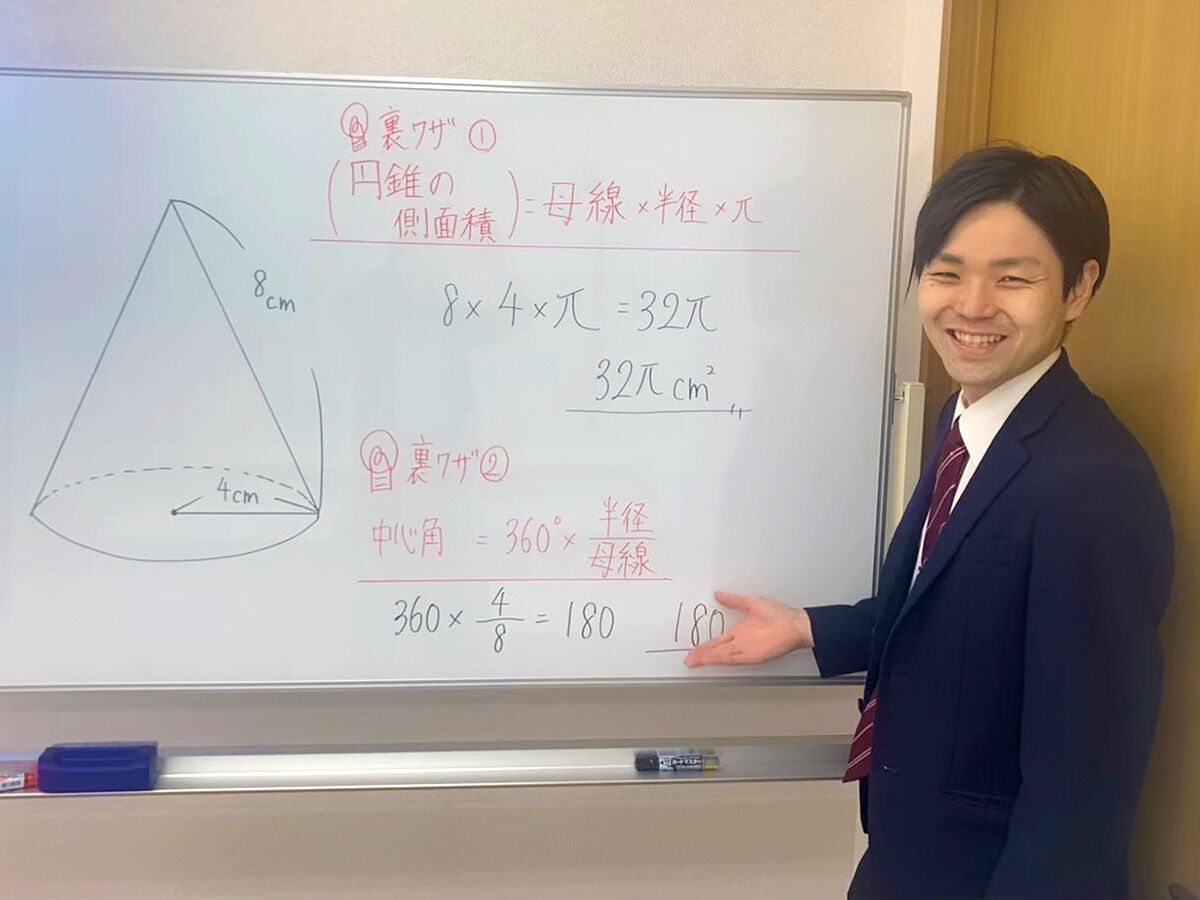 裏ワザ①
(円錐の側面積)=母線×半径×π
8cm
8×4×π=32π
32π cm²
裏ワザ②
4cm
中心角 = 360°× 半径/母線
360× 4/8 = 180
180
ボードマスター